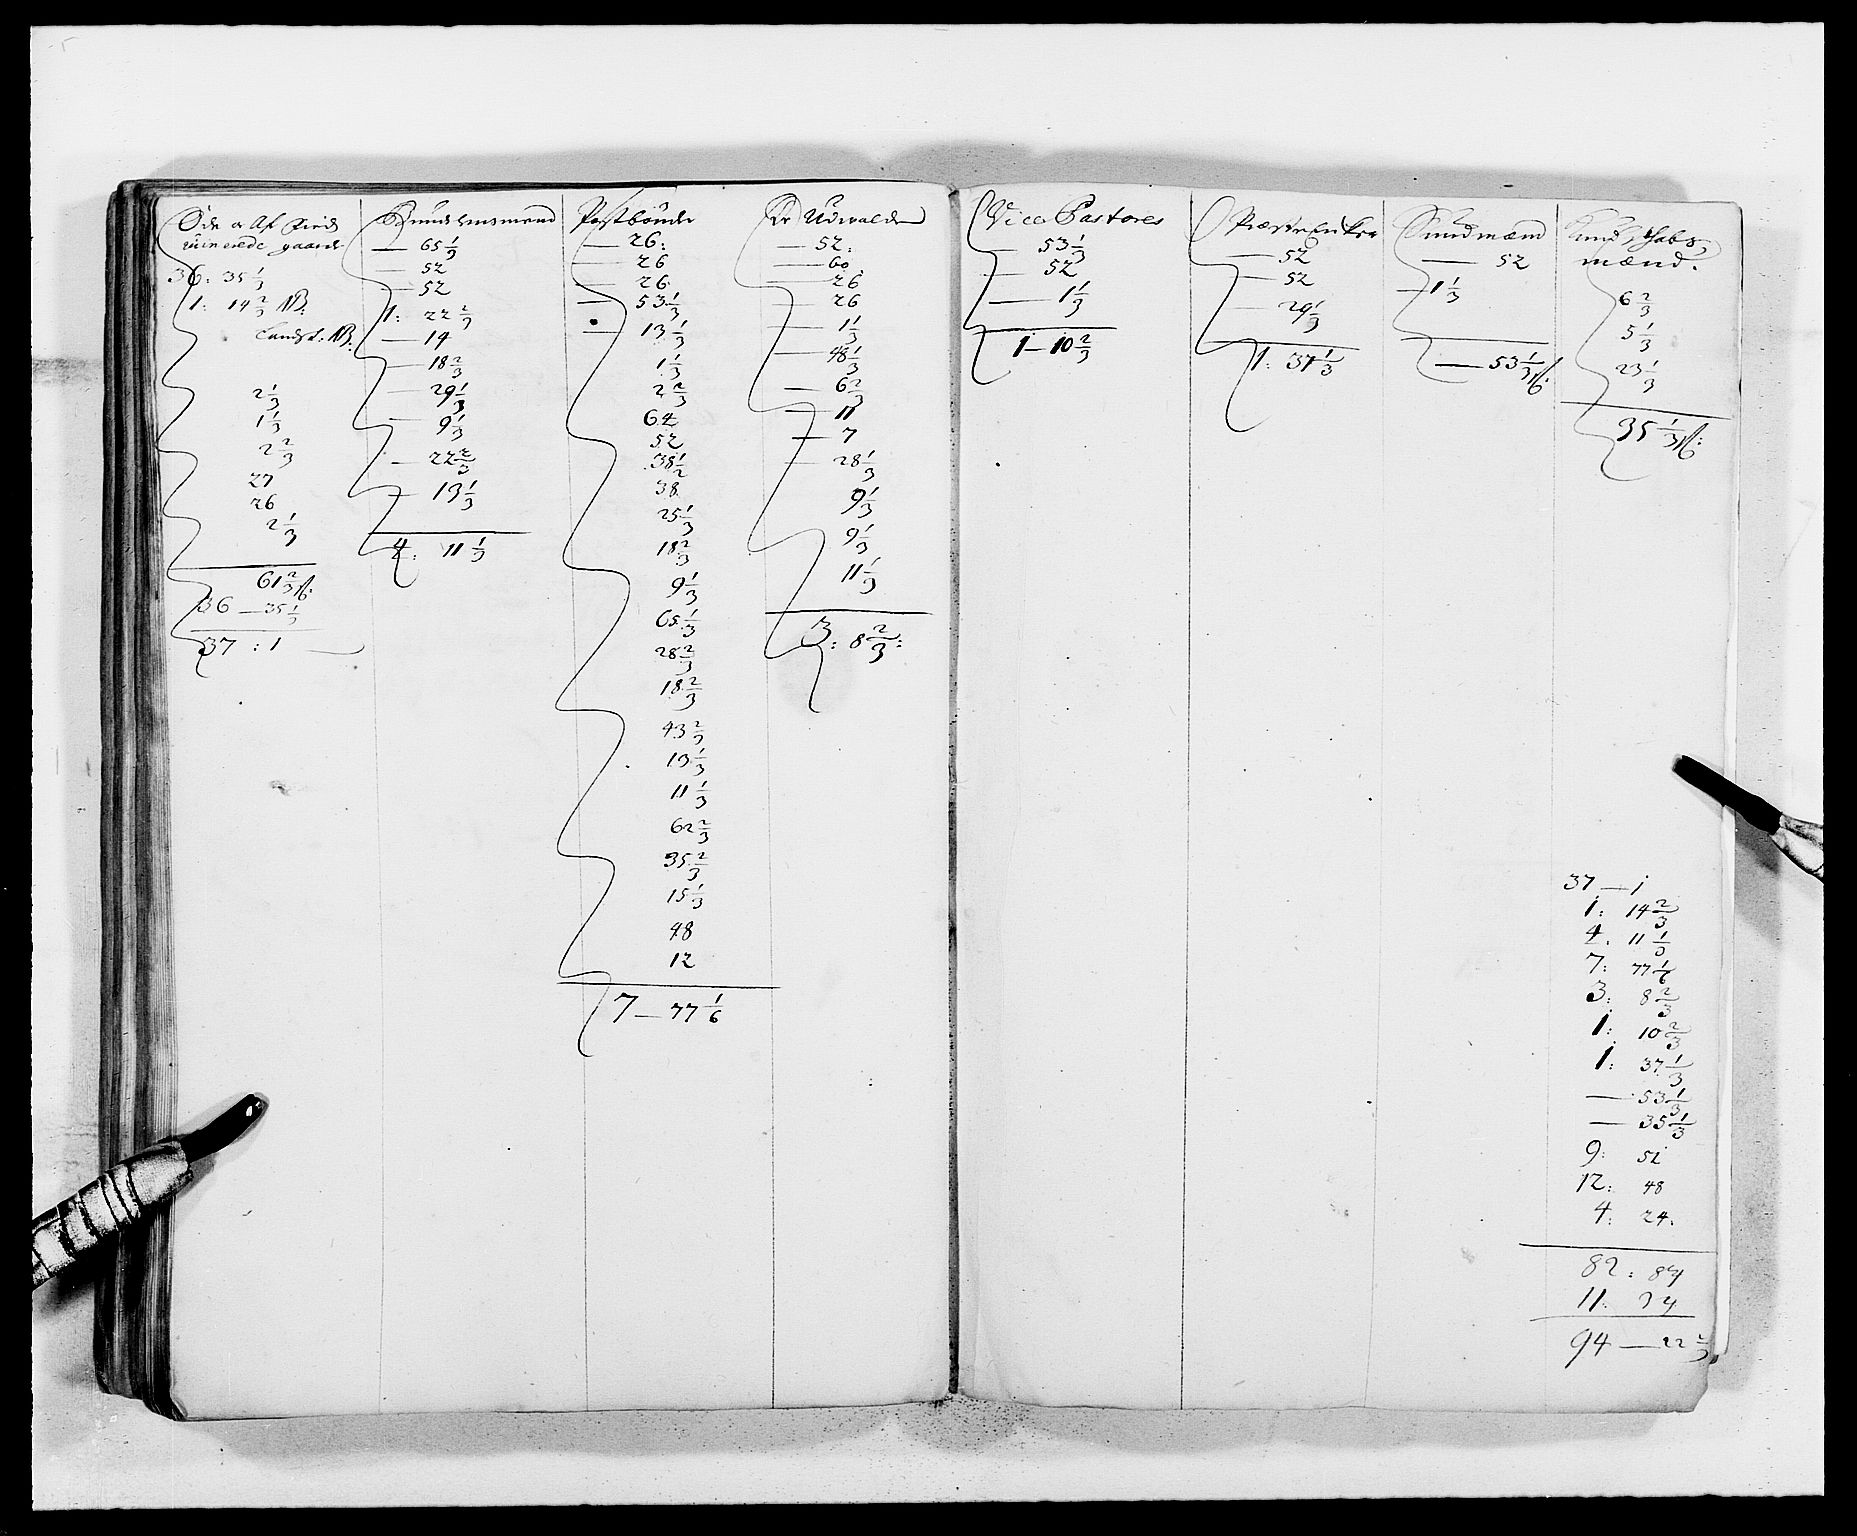 Øde a Af Fiend
ruinerede gaarde
36: 35 1/3
1: 14 2/3 NB:
Landt: NB:
2 1/3
1 1/3
2 2/3
27
26
2 1/3
61 2/3 ß:
36 — 35 1/3
37 : 1 —
— 65 1/3
— 52
— 52
1: 22 2/3
— 14
— 18 2/3
— 29 1/3
— 9 1/3
— 22 2/3
— 13 1/3
4: 11 1/3
Postbønder
— 26:
— 26
— 26
— 53 1/3
— 13 1/3
1 1/3
2 2/3
64
52
38 1/2
38
25 1/3
18 2/3
9 1/3
65 1/3
28 2/3
18 2/3
43 2/3
13 1/3
11 1/3
62 2/3
35 2/3
15 1/3
48
12
7 — 77 1/6
De Udvalde
— 52:
— 60
— 26
— 26
— 1 1/3
— 48 1/3
— 6 2/3
— 11
— 7
— 28 1/3
9 1/3
9 1/3
11 1/3
3: 8 2/3:
Vice Pastores
— 53 1/3
— 52
— 1 1/3
1 — 10 2/3
Præste Enker
— 52
— 52
— 29 1/3
1: 37 1/3
Sundmænd
— 52
— 1 1/3
— 53 1/3 ß:
Kundschabs
mænd.
6 2/3
5 1/3
23 1/3
35 1/3 ß:
37 — 1
1: 14 2/3
4: 11 1/3
7: 77 1/6
3: 8 2/3
1: 10 2/3
1: 37 1/3
— 53 1/3
— 35 1/3
9: 51
12: 48
4: 24:
82: 84
11: 34
94 — 22 2/3